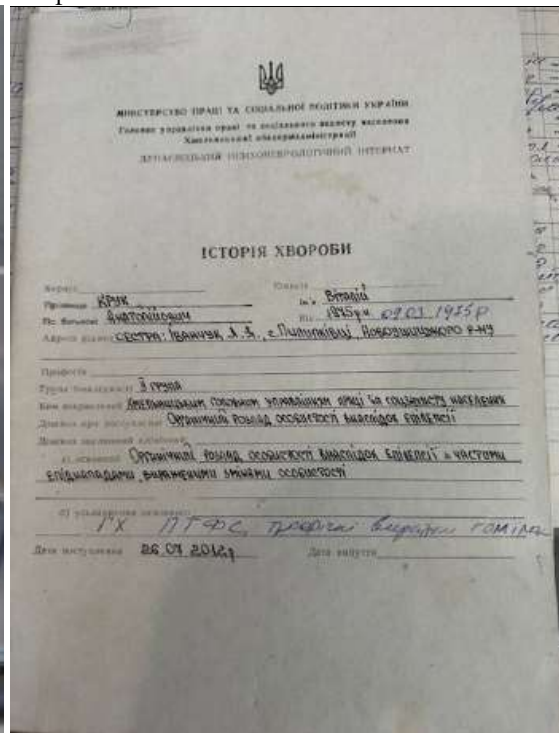 МІНІСТЕРСТВО ПРАЦІ ТА СОЦІАЛЬНОЇ ПОЛІТИКИ УКРАЇНИ
Головне управління праці та соціального захисту населення
Хмельницької облдержадміністрації
ПСИХОНЕВРОЛОГІЧНИЙ ІНТЕРНАТ
ІСТОРІЯ ХВОРОБИ
Прізвище КРУК Ім'я Віталій
По батькові Анатолійович Вік 1975р.н. 09.03.1975р
Адреса рідних СЕСТРА: Іванчук с. Пилипківці, Новоушицького р-ну
Професія
Група інвалідності ІІ група
Ким направлений Хмельницьким головним управлінням праці та соцзахисту населення
Діагноз при поступленні Органічний розлад особистості внаслідок епілепсії
Діагноз заключний клінічний:
а) основний Органічний розлад особистості внаслідок епілепсії з частими
епінападами, вираженими змінами особистості
ГХ ПТФС, трофічні виразки гомілок
Дата поступлення 26.07.2012р Дата випуття